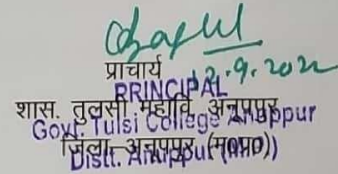 प्राचार्य
12.9.2022
PRINCIPAL
शास. तुलसी महावि. अनूपपुर
Govt. Tulsi College Anuppur
जिला-अनूपपुर (म०प्र०)
Distt. Anuppur (M.P.)